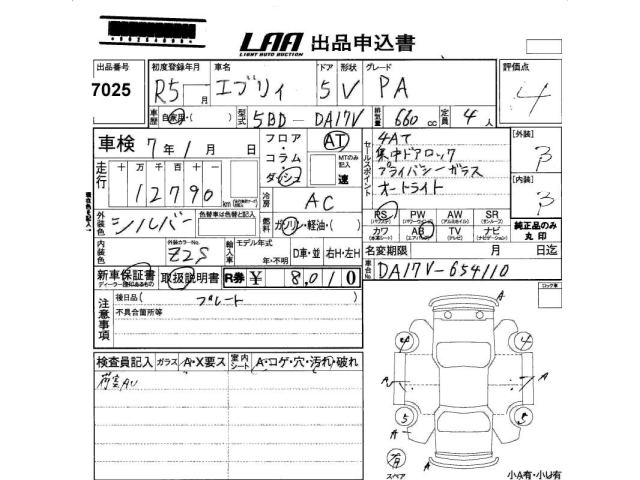 LAA 出品申込書
LIGHT AUTO AUCTION
出品番号 初度登録年月 車名 ドア 形状 グレード 評価点
7025 R5 月 エブリィ 5 V PA 4
車歴 自家用・( ) 型式 5BD-DA17V 排気量 660 cc 定員 4 人
車検 7年1月 日 フロア・コラム・ダッシュ AT MTのみ記入 速
セールスポイント 4AT
集中ドアロック
プライバシーガラス
オートライト
[外装] 3
[内装] 3
走行 十 万 千 百 十 一
12790 km
冷房 AC
外装色 シルバー 色替車は色替と記入 燃料 ガソリン・軽油・( )
PS PW AW SR
カワ AB TV ナビ
純正品のみ丸印
内装色 外装カラーNo. Z2S 輸入車 モデル年式 年・不明 D車・並 右H・左H
名変期限 月 日迄
新車保証書 取扱説明書 R券 ¥ 8,010
車台No. DA17V-654110
注意事項 後日品( プレート
不具合箇所等
検査員記入 ガラス A・X要ス 室内シート A・コゲ・穴・汚れ・破れ
荷室AU
ロック車
A
4
A A
5 5
A
有 A
スペア 小A有・小U有